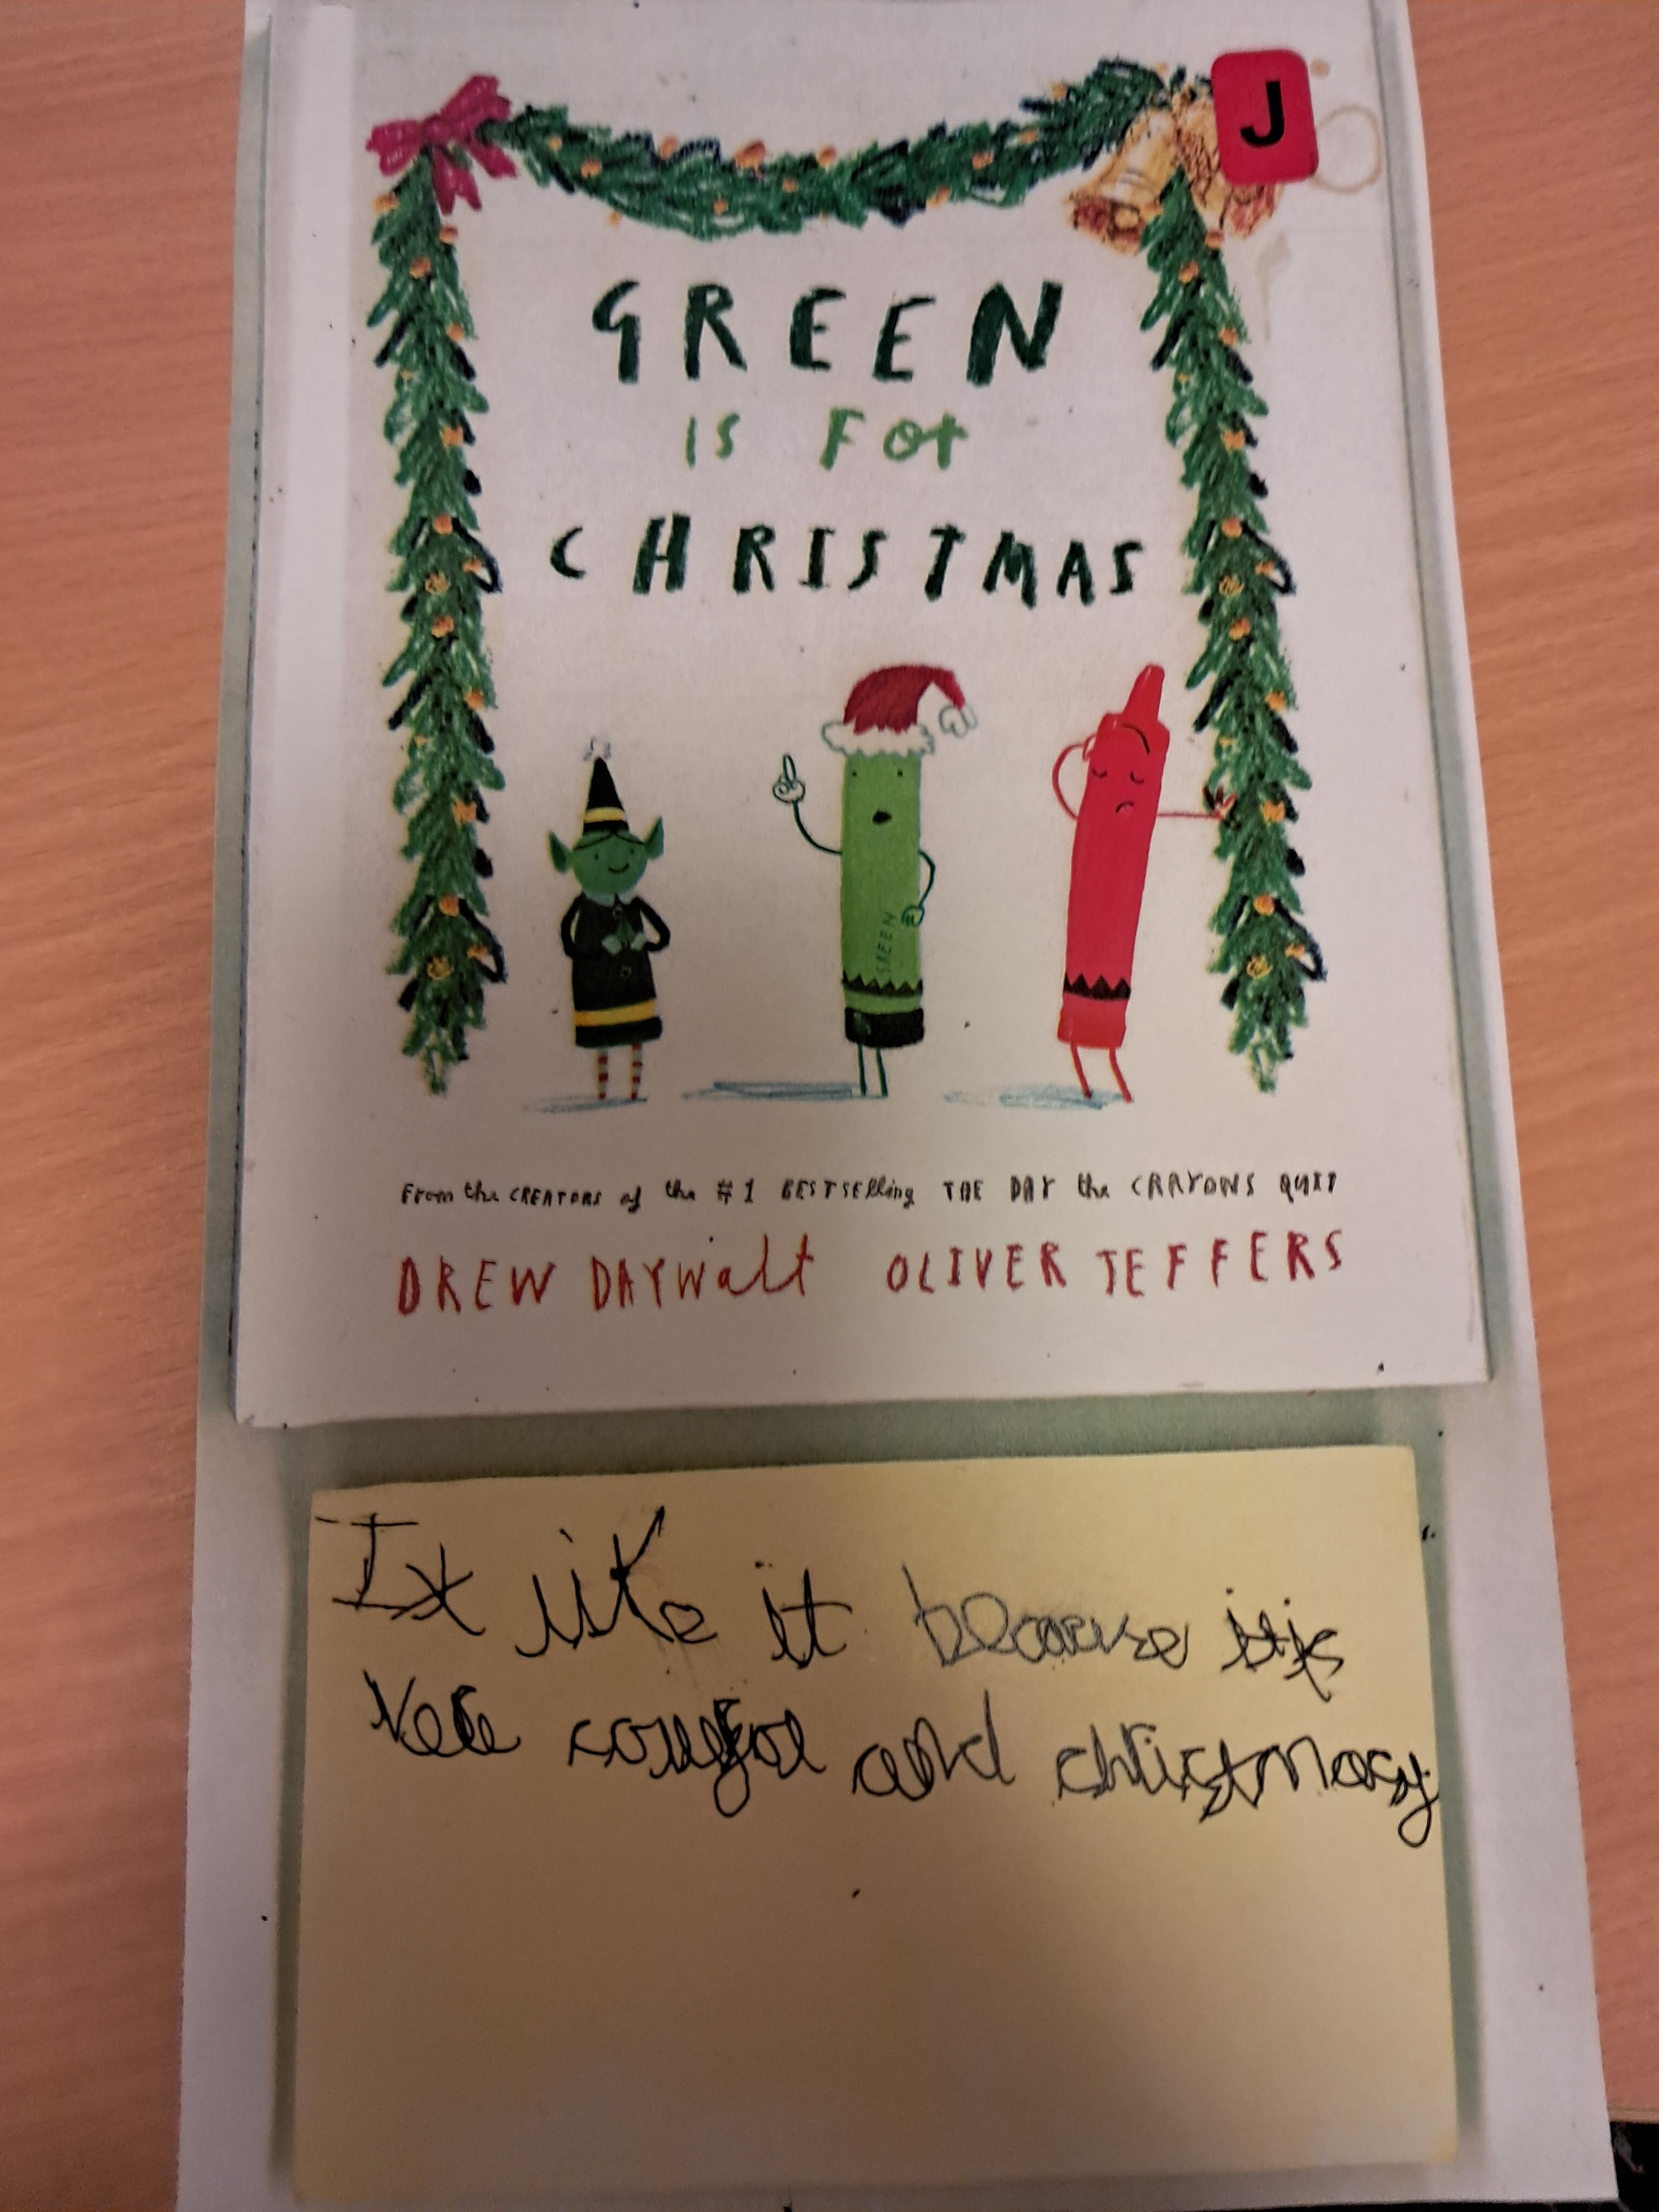 J
GREEN
IS FOR
CHRISTMAS
GREEN
From the CREATORS of the #1 BESTSELLING THE DAY the CRAYONS QUIT
DREW DAYWALT OLIVER JEFFERS
like it because
and christmasy